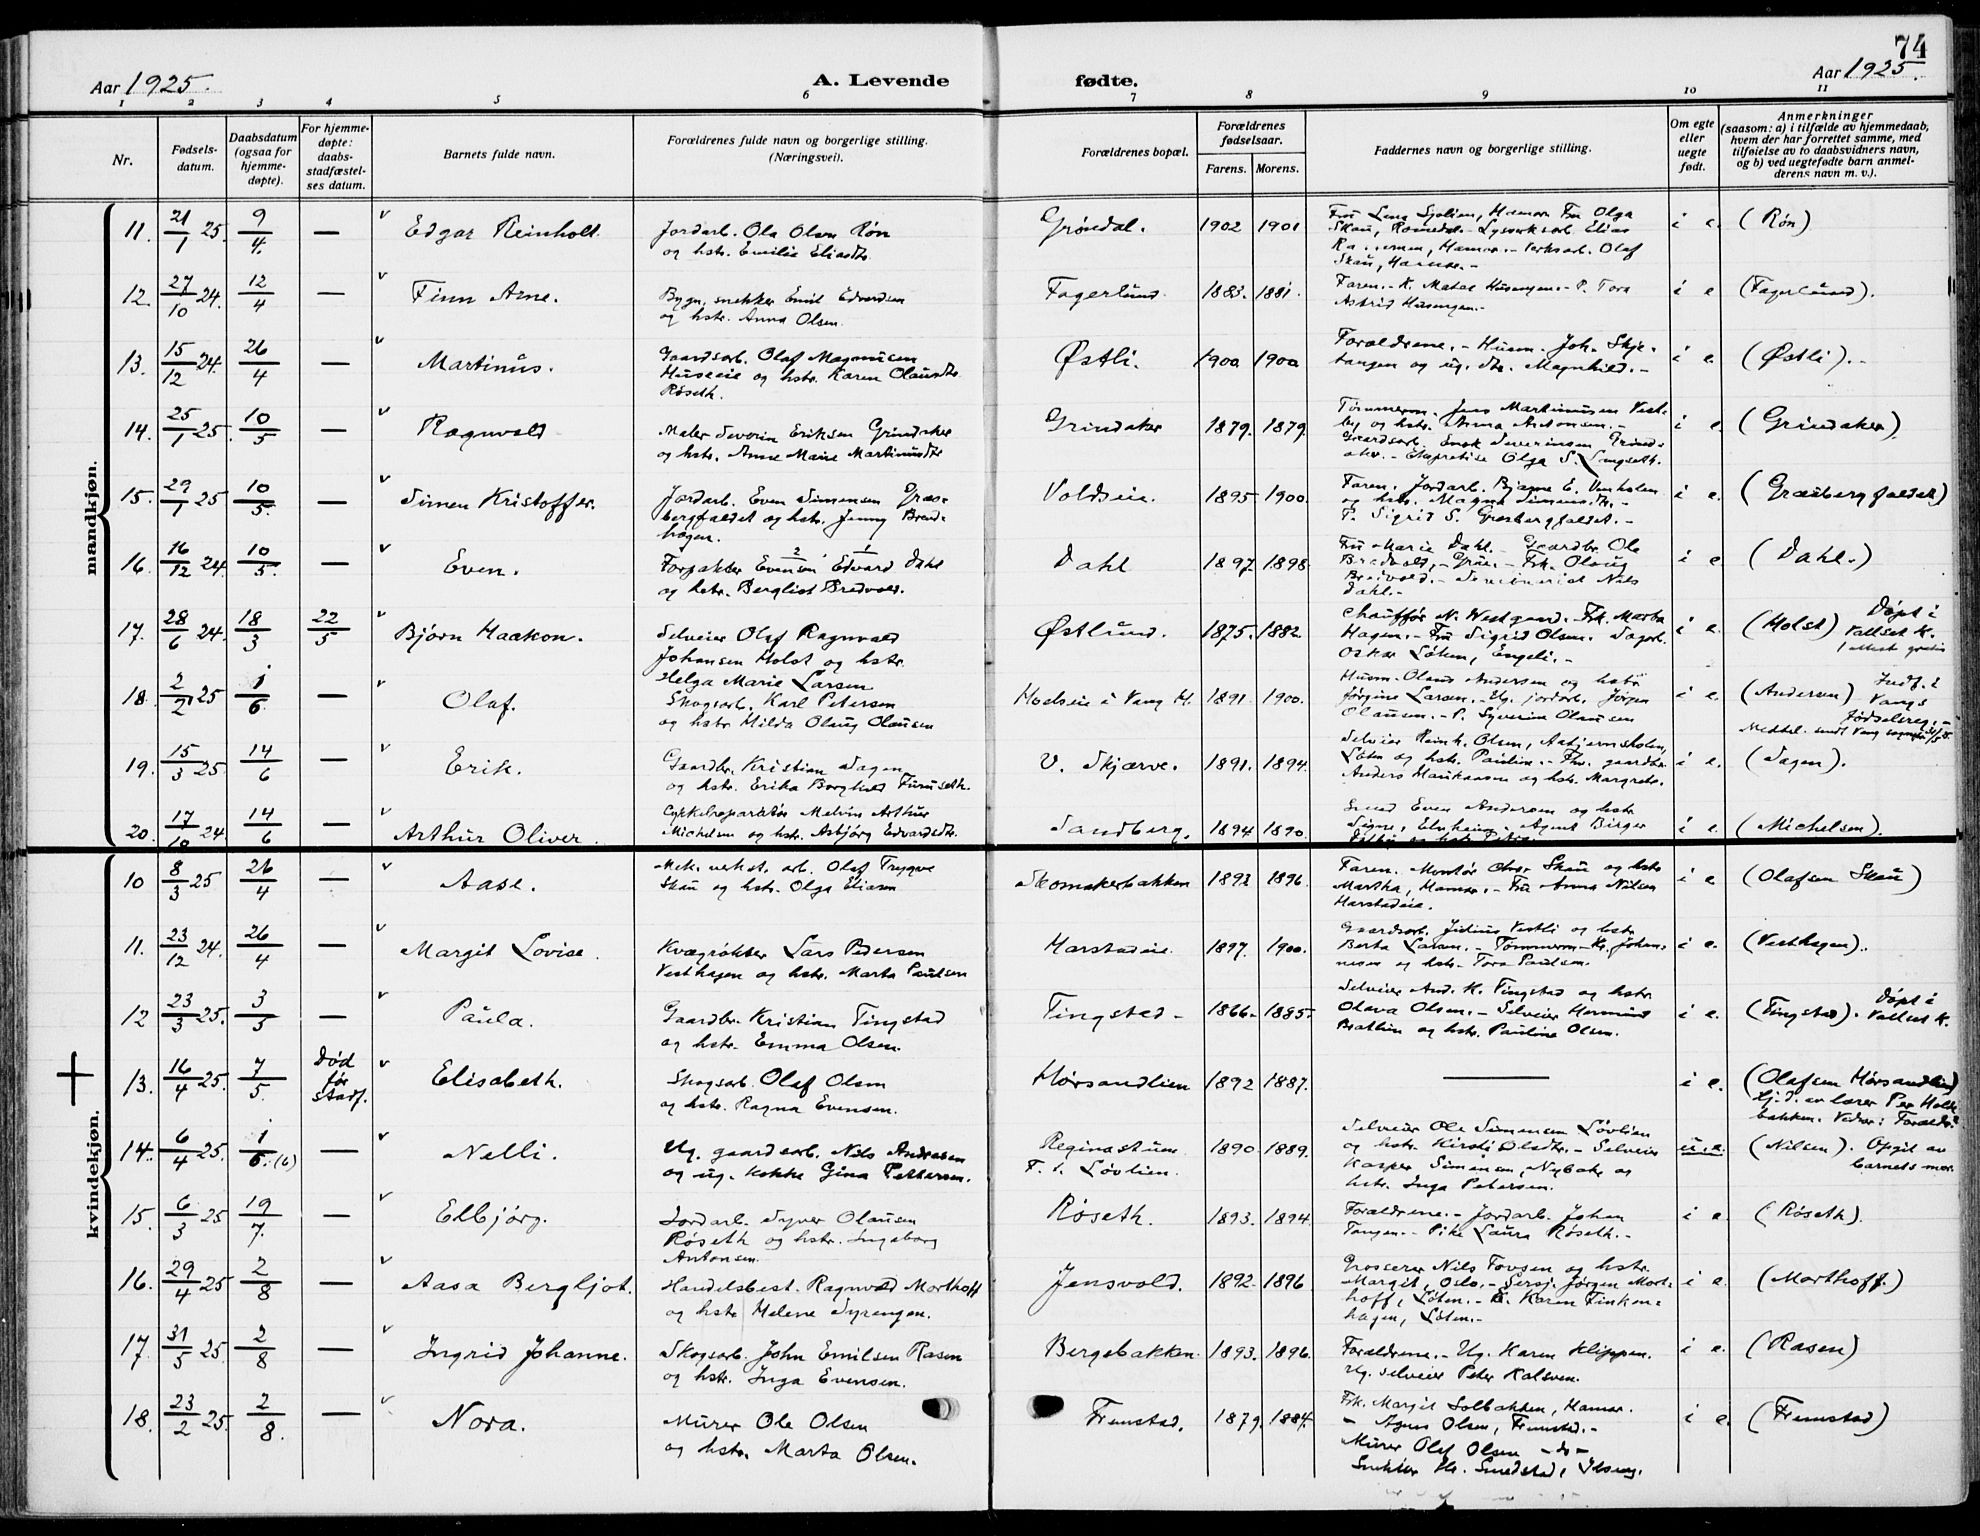 74
Aar 1925.
A. Levende
fødte.
Aar 1925.
1 2 3 4 5 6 7 8 9 10 11
Nr.
Fødsels-
datum.
Daabsdatum
(ogsaa for
hjemme-
døpte).
For hjemme-
døpte:
daabs-
stadfæstel-
ses datum.
Barnets fulde navn.
Forældrenes fulde navn og borgerlige stilling.
(Næringsvei).
Forældrenes bopæl.
Forældrenes
fødselsaar.
Farens. Morens.
Faddernes navn og borgerlige stilling.
Om egte
eller
uegte
født.
Anmerkninger
(saasom: a) i tilfælde av hjemmedaab,
hvem der har forrettet samme, med
tilføielse av to daabsvidners navn,
og b) ved uegtefødte barn anmel-
derens navn m. v.).
mandkjøn.
11. 21/1 25. 9/4. — Edgar Reinholt.
Jordarb. Ola Olsen Røn
og hstr. Emilie Eliasdtr.
Grøndal. 1902 1901
Fru Lena Sjølien, Hamar. Fru Olga
Skau, Romedal. Elias
Hamar. - Verksarb. Olaf
Skau, Hamar. -
i e. (Røn)
12. 27/10 24. 12/4 — Finn Arne.
Bygn. snekker Emil Edvardsen
og hstr. Anna Olsen.
Fagerlund. 1883. 1881.
Faren. - K. Husengen. - P. Tora
Astrid Husengen. -
i e (Fagerlund).
13. 15/12 24. 26/4 — Martinus.
Gaardsarb. Olaf Magnusen
Huseeie og hstr. Karen Olausdtr.
Røseth.
Østli. 1900. 1900
Forældrene. - Husm. Joh. Skje-
tangen og ug. dtr. Magnhild. -
i e. (Østli). -
14. 25/1 25. 10/5 — Ragnvald
Maler Severin Eriksen Grindaker
og hstr. Anne Marie Martinusdtr
Grindaker 1879. 1879.
Tømmerm. Jens Martinusen Vest-
by og hstr. Anna Antonsen. -
Gaardsarb. Enok Severinsen Grind-
aker. - Olga S. Langseth.
i e. (Grindaker).
15. 29/1 25 10/5. — Simen Kristoffer.
Jordarb. Even Simensen Græs-
bergfaldet og hstr. Jenny Brend-
hagen.
Voldseie. 1895 1900.
Faren. Jordarb. Bjarne E. Venholen
og hstr. Magna Simensdtr. -
P. Sigrid S. Græsbergfaldet. -
i e. (Græsbergfaldet)
16. 16/12 24. 10/5. — Even.
Forpakter Evensøn Edvard Dahl
og hstr. Bergliot Bredvold.
Dahl 1897. 1898.
Fru Marie Dahl. - Gaardbr. Ole
Bredvold, Grue. - Frk. Olaug
Bredvold. - Seminarist Nils
Dahl. -
i e (Dahl.)
17. 28/6 24. 18/3 22/5 Bjørn Haakon.
Selveier Olaf Ragnvald
Johansen Holst og hstr.
Helga Marie Larsen
Østlund. 1875. 1882.
Chauffør N. Westgaard. Frk. Marta
Hagen. - Fru Sigrid Olsen. Sagarb.
Oskar Løken, Engeli. -
i e. (Holst) Døpt i
Vallset K.
18. 2/2 25 1/6. — Olaf.
Skogsarb. Karl Petersen
og hstr. Hilda Olaug Olausen
i Vang H. 1891. 1900.
Husm. Olaus Andersen og hstr
Jørgine Larsen. - Ug. jordarb. Jørgen
Olausen. - P. Syverine Olausen
i e. (Andersen) Indf. i
Vangs
fødselsreg. -
19. 15/3 25. 14/6 — Erik.
Gaardbr. Kristian Sagen
og hstr. Erika Borghild Furuseth.
V. Skjærve. 1891. 1894.
Selveier Reinh. Olsen, Aabjørnsholen,
Løten og hstr. Pauline. - Fh. gaardbr.
Anders og hstr. Margrete.
i e. (Sagen).
20. 17/10 24. 14/6 — Arthur Oliver.
Cykkelreparatør Melvin Arthur
Michelsen og hstr. Asbjørg Edvardsdtr.
Sandberg. 1894 1890.
Smed Even Andersen og hstr
Signe, Elvheim. - Agent Birger
i e. (Michelsen).
kvindekjøn.
10 8/3 25 26/4 — Aase.
Mek. verkst. arb. Olaf Trygve
Skau og hstr. Olga Eliasen
Skomakerbakken 1892 1896.
Faren. Montør Skau og hstr
Martha, Hamar. - Fru Anna Nilsen
Harstadeie.
i e (Olafsen Skau)
11. 23/12 24. 26/4 — Margit Lovise.
Kvægrøkter Lars Pedersen
Vesthagen og hstr. Marta Paulsen
Harstadeie. 1897. 1900.
Gaardsarb. Julius Vestli og hstr
Berta Larsen. - Tømmerm. Kr. Johan-
nesen og hstr. Tora Paulsen.
i e. (Vesthagen).
12 23/3 25. 3/5 — Paula.
Gaardbr. Kristian Tingstad
og hstr. Emma Olsen.
Tingstad - 1866. 1885.
Selveier And. K. Tingstad og hstr.
Olava Olsen. - Selveier Hermund
Bratlien og hstr. Pauline Olsen.
i e. (Tingstad). Døpt i
Vallset K.
13. 16/4 25. 7/5. Død
før
stadf. Elisabeth.
Skogsarb. Olaf Olsen
og hstr. Ragna Evensen.
Hørsandlien 1892 1887. —
i e. (Olafsen Hørsandlien)
Hj. d. av lærer Per Holte-
bakken. Vidner: Forældr.
14. 6/4 25. 1/6. (6) — Nelli.
Ug. gaardsarb. Nils Andreasen
og ug. kokke Gina Pettersen.
Reginastuen
F. t. Løvlien. 1890. 1889.
Selveier Ole Simensen Løvlien
og hstr. Kirsti Olsdtr. - Selveier
Kasper Simensen, Nybake og
hstr. Inga Petersen.
u. e. (Nilsen). Opgit av
barnets mor.
15. 6/3 25 19/7. — Elbjørg.
Jordarb. Syver Olausen
Røseth og hstr. Ingeborg
Antonsen.
Røseth. 1893. 1894.
Forældrene. - Jordarb. Johan
Tangen. - Pike Laura Røseth. -
i e. (Røseth).
16. 29/4 25 2/8 — Aasa Bergljot.
Handelsbest. Ragnvald Morthoff
og hstr Helene Syrengen.
Jensvold. 1892. 1896
Grosserer Nils Tovsen og hstr.
Margit, Oslo. - Sersj. Jørgen Mort-
hoff, Løten. - Karen Finken-
hagen, Løten. -
i e. (Morthoff.)
17. 31/5 25. 2/8 — Ingrid Johanne.
Skogsarb. John Emilsen Rasen
og hstr. Inga Evensen.
Bergsbakken. 1893. 1896.
Forældrene. - Ug. Karen Klippen.
Ug. selveier Peter Kalsven.
i e. (Rasen)
18. 23/2 25. 2/8. — Nora.
Murer Ole Olsen
og hstr. Marta Olsen.
Fremstad. 1879. 1884.
Frk. Margit Solbakken, Hamar.
- Agnes Olsen, Fremstad. -
Murer Olaf Olsen - do -
Snekker Hr. Smedstad,
i e. (Fremstad)